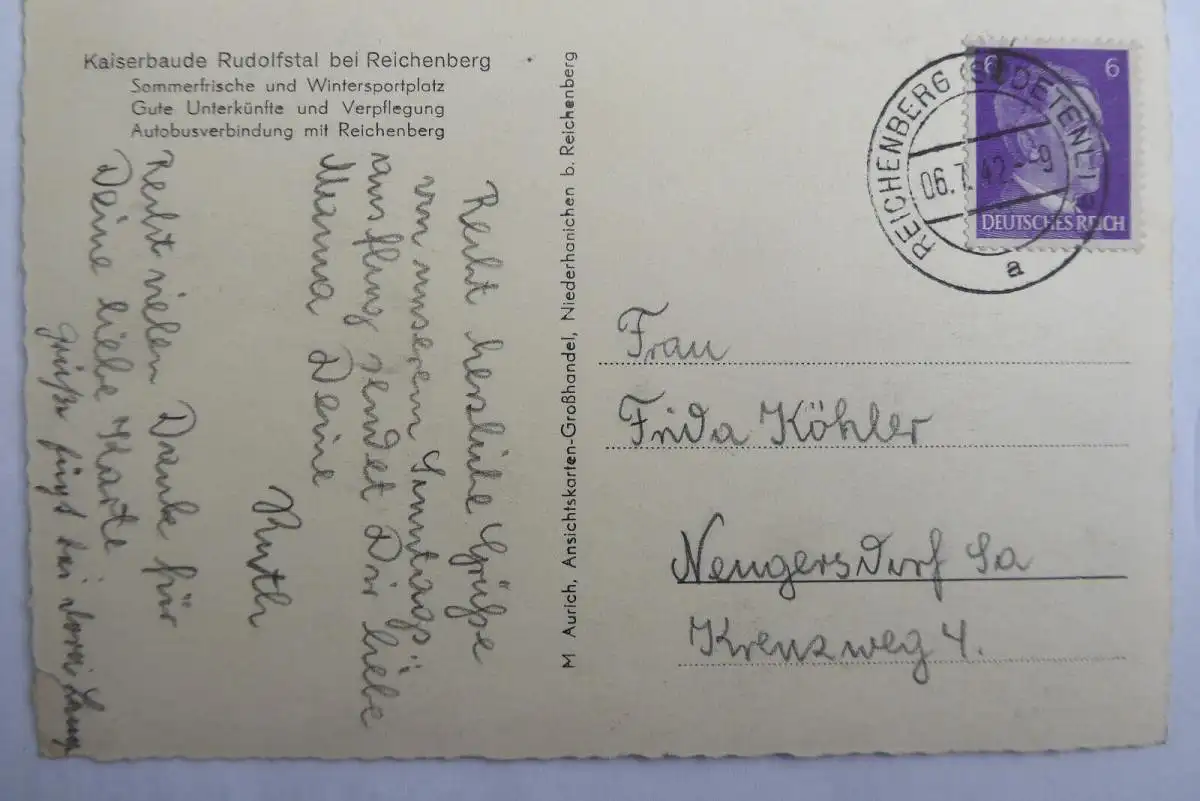 Kaiserbaude Rudolfstal bei Reichenberg
Sommerfrische und Wintersportplatz
Gute Unterkünfte und Verpflegung
Autobusverbindung mit Reichenberg
Recht herzliche Grüße
von unserem Sonntags
ausflug sendet Dir liebe
Mama Deine
Ruth
Recht vielen Dank für
Deine liebe Karte
M Aurich, Ansichtskarten-Großhandel, Niederhanichen b. Reichenberg
REICHENBERG (SUDETENL)
06.7.42
a
6 6
DEUTSCHES REICH
Frau
Frida Köhler
Neugersdorf Sa
Kreuzweg 4.